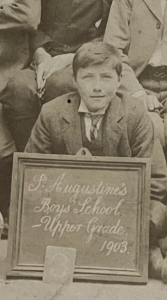 St. Augustine's
Boys School.
-Upper Grade
1903.
3